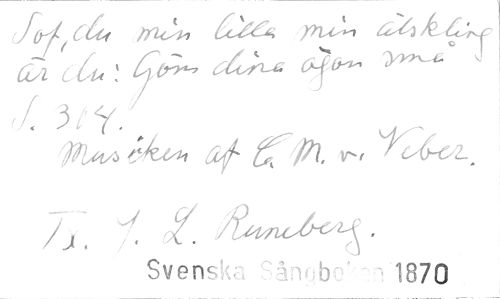 Sof, du min lilla min älskling
är du: Göm dina ögon små
S. 304.
Musiken af C. M. v. Veber.
Tx. J. L. Runeberg.
Svenska Sångboken 1870